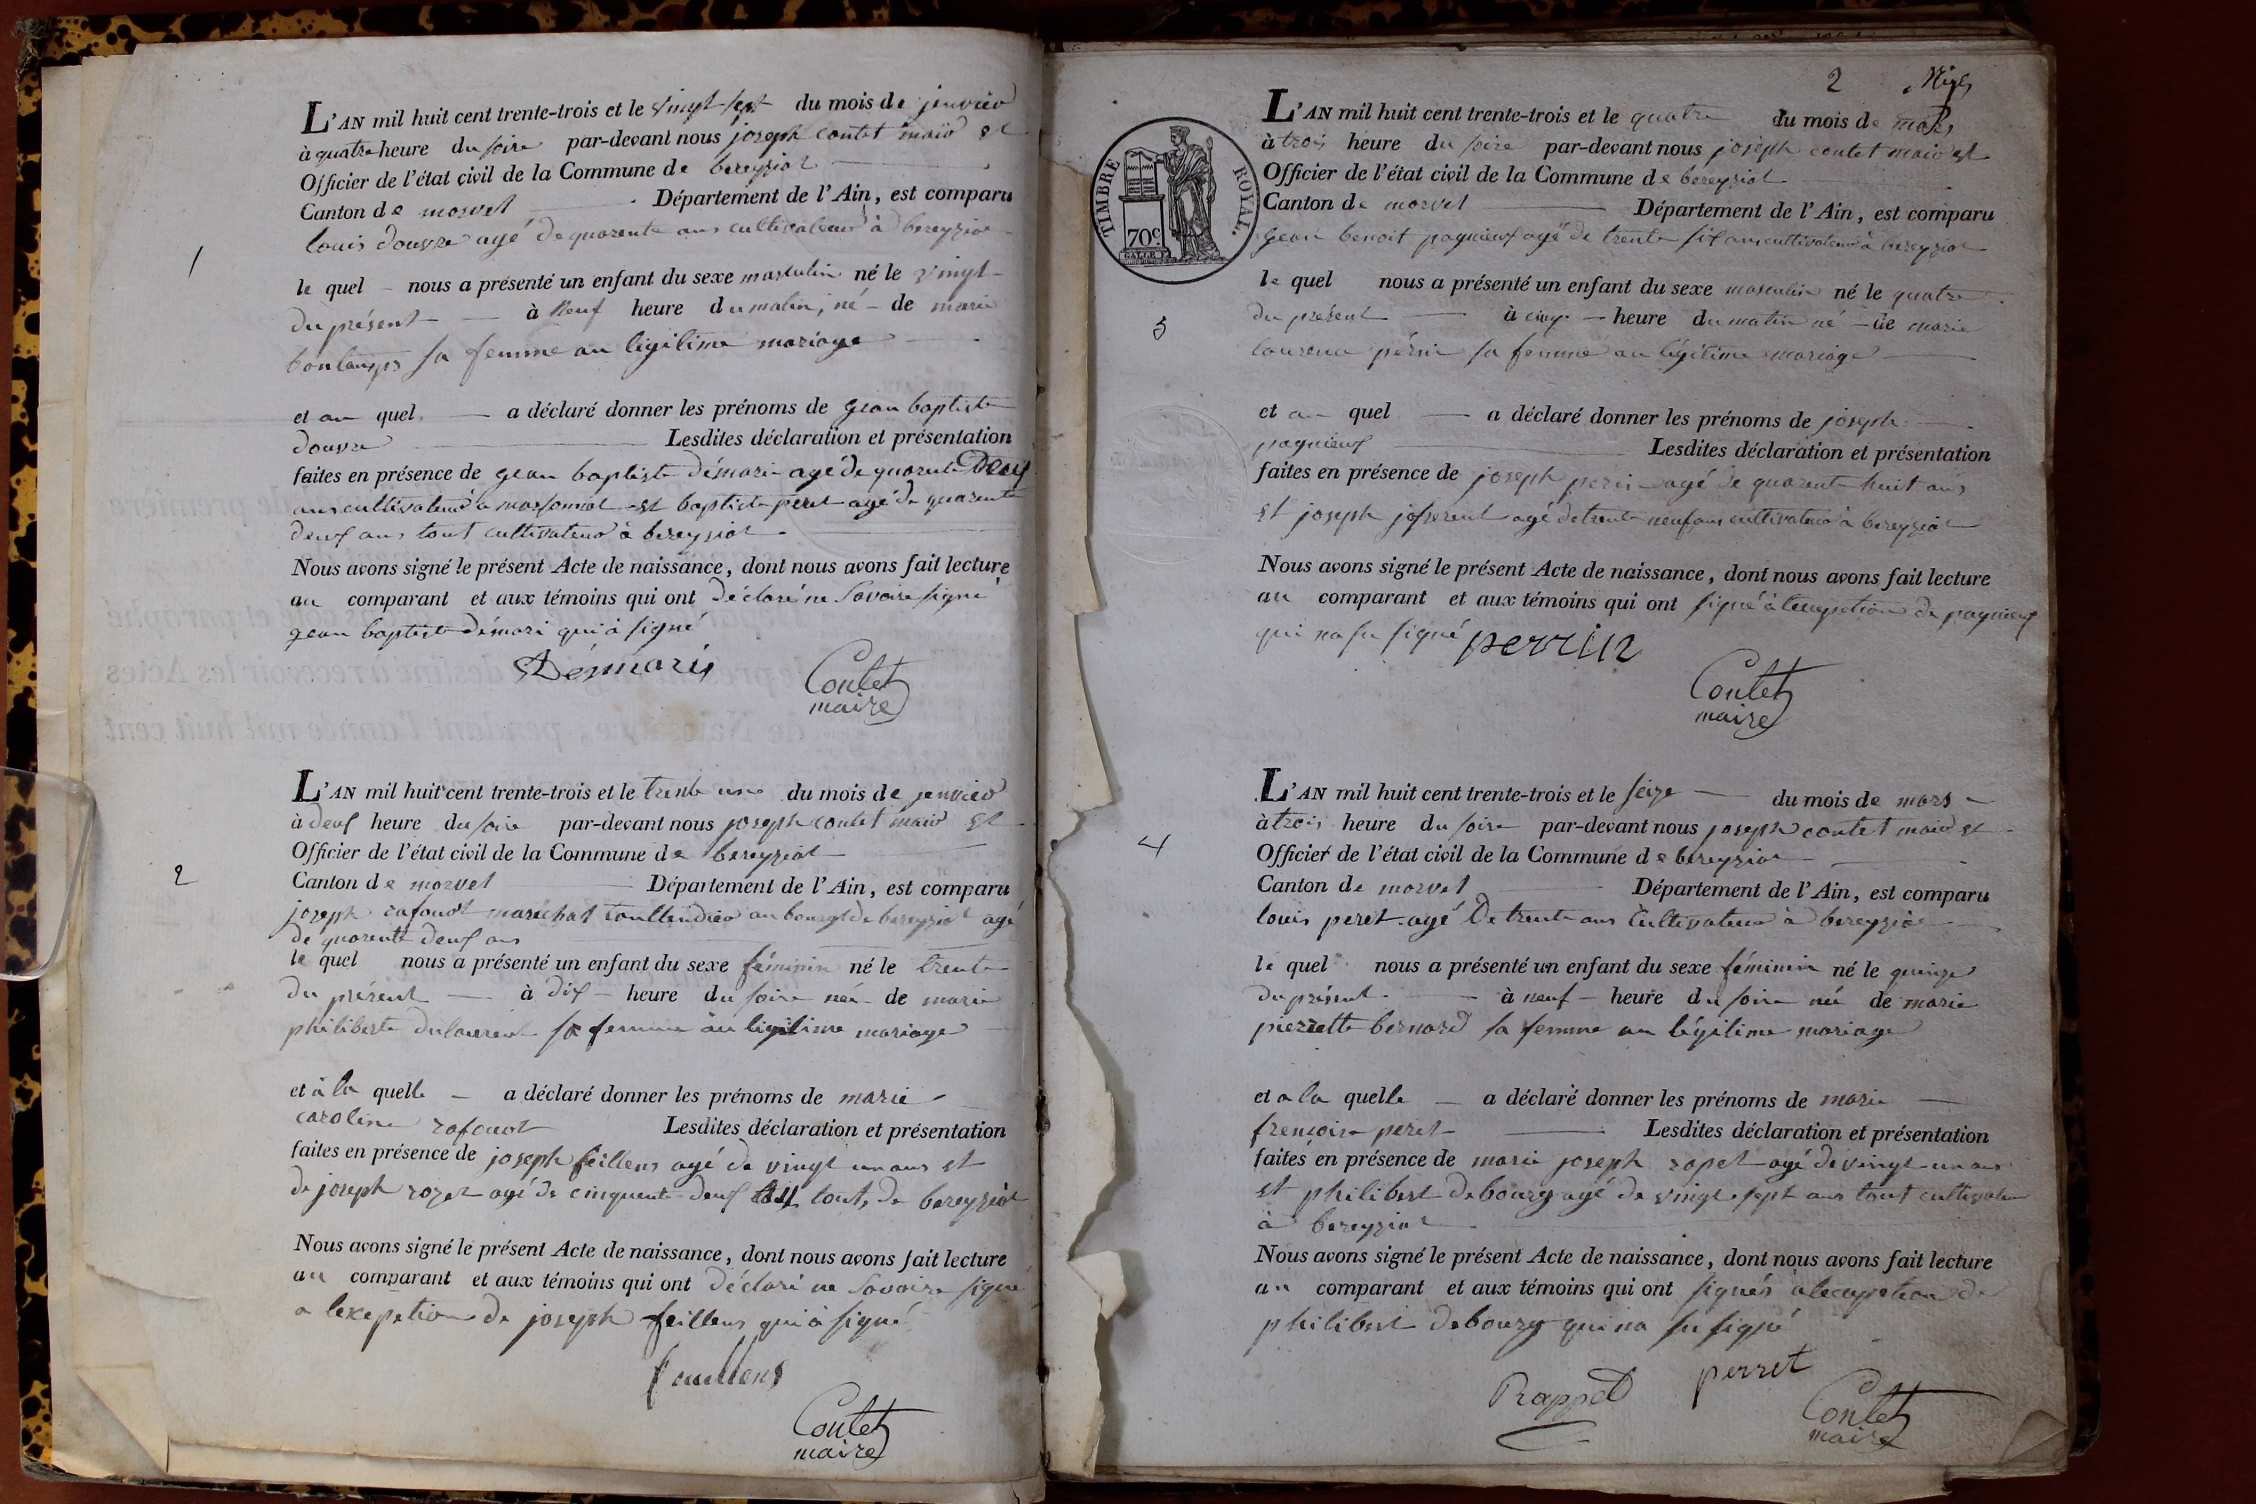 1
L'AN mil huit cent trente-trois et le vingt sept du mois de jenvier
à quatre heure du soire par-devant nous joseph contet maire et
Officier de l'état civil de la Commune de bereyziat
Canton de morvel Département de l'Ain, est comparu
louis douvre agé de quarente ans cultivateur à bereyziat
le quel nous a présenté un enfant du sexe masculin né le vingt
du présent à neuf heure du matin, né de marie
bontemps sa femme an légitime mariage
et au quel a déclaré donner les prénoms de gean baptiste
douvre Lesdites déclaration et présentation
faites en présence de gean baptiste démari agé de quarente deux
ans cultivateur à marsonnat et baptiste peret agé de quarente
deux ans tout cultivateur à bereyziat
Nous avons signé le présent Acte de naissance, dont nous avons fait lecture
au comparant et aux témoins qui ont déclaré ne savoire signé
gean baptiste démari qui à signé
Démaris
Contet
maire
2
L'AN mil huit cent trente-trois et le trente une du mois de jenvier
à deux heure du soire par-devant nous joseph contet maire et
Officier de l'état civil de la Commune de bereyziat
Canton de morvel Département de l'Ain, est comparu
joseph rafourt maréchat au bourg de bereyziat agé
de quarente deux ans
le quel nous a présenté un enfant du sexe féminin né le trente
du présent à dix heure du soire née de marie
philiberte dulaurent sa femme an légitime mariage
et à la quelle a déclaré donner les prénoms de marie
caroline Lesdites déclaration et présentation
faites en présence de joseph feillens agé de vingt un ans et
de joseph rozet agé de cinquente deux ans tout de bereyziat
Nous avons signé le présent Acte de naissance, dont nous avons fait lecture
au comparant et aux témoins qui ont déclaré ne savoire signé
a lexepetion de joseph feillens qui à signé
Contet
maire
2
TIMBRE ROYAL.
70c
3
L'AN mil huit cent trente-trois et le quatre du mois de mars
à trois heure du soire par-devant nous joseph contet maire et
Officier de l'état civil de la Commune de bereyziat
Canton de morvel Département de l'Ain, est comparu
gean benoit pagnieux agé de trente six ans cultivateur à bereyziat
le quel nous a présenté un enfant du sexe masculin né le quatre
du présent à cinq heure du matin né de marie
laurence périn sa femme an légitime mariage
et au quel a déclaré donner les prénoms de joseph
pagnieux Lesdites déclaration et présentation
faites en présence de joseph perin agé de quarente huit ans
et joseph josserent agé de trente neuf ans cultivateur à bereyziat
Nous avons signé le présent Acte de naissance, dont nous avons fait lecture
au comparant et aux témoins qui ont signé à de pagnieux
qui na su signé perrin
Contet
maire
4
L'AN mil huit cent trente-trois et le seize du mois de mars
à trois heure du soire par-devant nous joseph contet maire et
Officier de l'état civil de la Commune de bereyziat
Canton de morvel Département de l'Ain, est comparu
louis peret agé de trente ans cultivateur à bereyziat
le quel nous a présenté un enfant du sexe féminin né le quinze
du présent à neuf heure du soire née de marie
pierrette bernard sa femme an légitime mariage
et a la quelle a déclaré donner les prénoms de marie
françoise peret Lesdites déclaration et présentation
faites en présence de marie joseph rapet agé de vingt un ans
et philibert debourg agé de vingt sept ans tout cultivateur
à bereyziat
Nous avons signé le présent Acte de naissance, dont nous avons fait lecture
au comparant et aux témoins qui ont signés de
philibert debourg qui na su signé
Rappet perret
Contet
maire